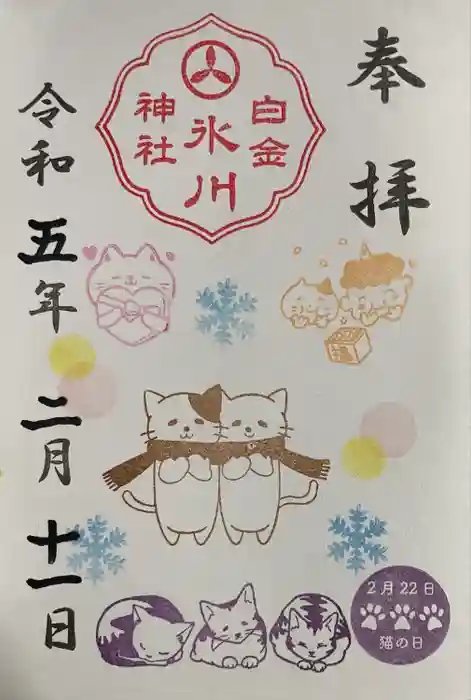 奉拝
白金
氷川
神社
令和五年二月十一日
福
2月22日
猫の日